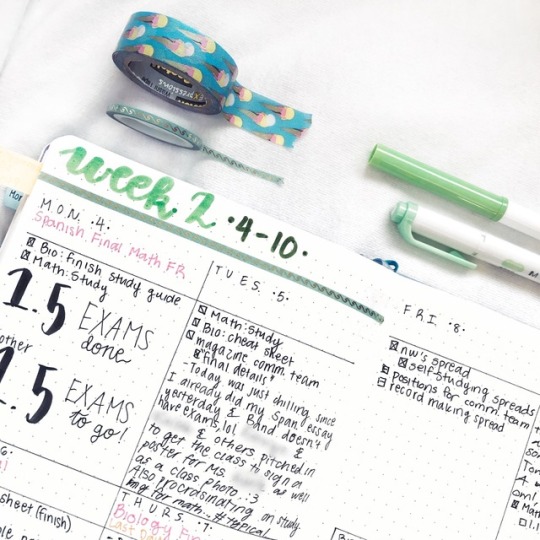 week 2 ·4-10·
MON. ·4·
Spanish Final Math FR
Bio: finish study guide
Math: Study
1.5 EXAMS
done
other
1.5 EXAMS
to go!
TUES. ·5·
Math: Study
Bio: cheat sheet
magazine comm. team
"final details"
-Today was just chilling since
I already did my Span. essay
yesterday & Band doesn't
have exams, lol
& others pitched in
to get the class to sign a
poster for MS.
as a class photo. :3 as well
Also procrastinating on study
ing for math... # typical
THURS. ·7·
Biology Fin
Last Da
FRI. ·8·
nw's spread
self-studying spreads
Positions for comm. team
record making spread
sheet (finish)
Mon